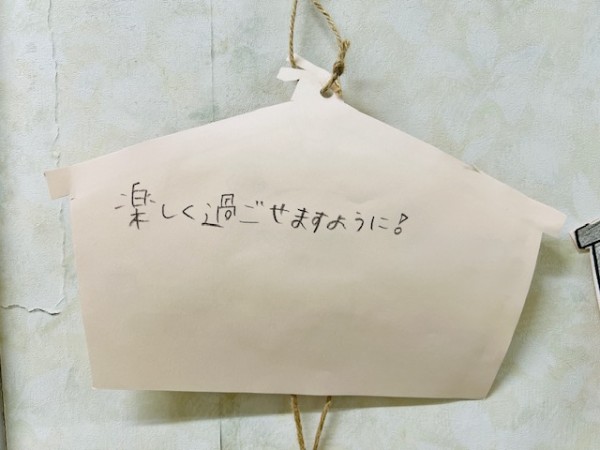 楽しく過ごせますように!